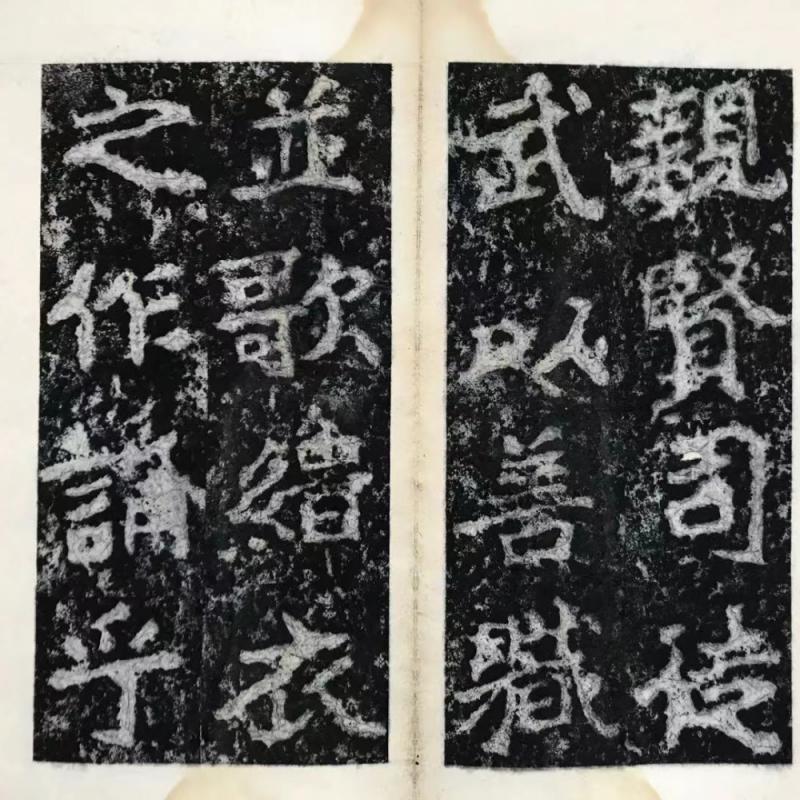 親賢司徒
武以善職
並歌緇衣
之作誦乎